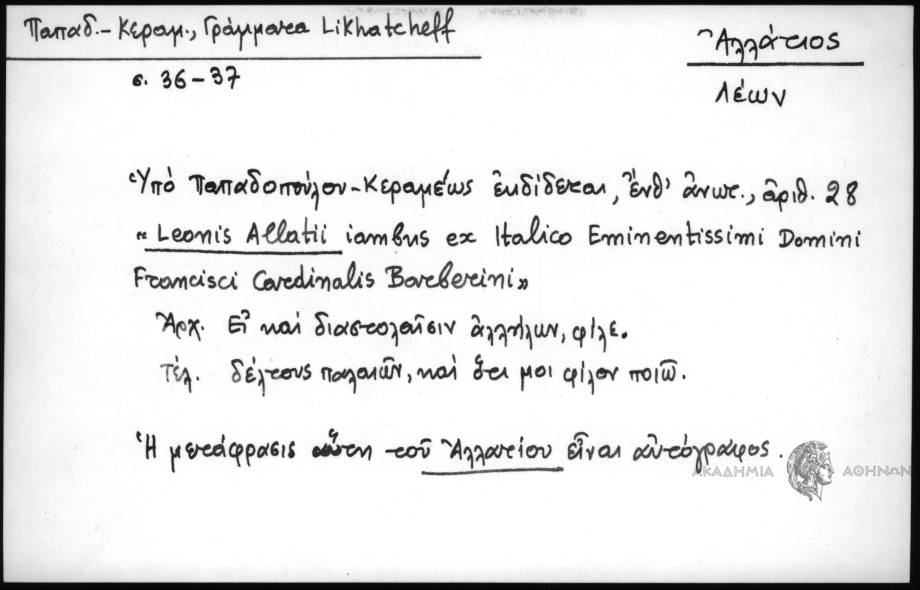 Παπαδ.-Κεραμ., Γράμματα Likhatcheff
Ἀλλάτιος
σ. 36-37
Λέων
Ὑπό Παπαδοπούλου-Κεραμέως ἐκδίδεται, ἔνθ' ἄνωτ., ἀριθ. 28
"Leonis Allatii iambus ex Italico Eminentissimi Domini
Francisci Cardinalis Barberini»
Ἀρχ. Εἰ καί διαστολαῖσιν ἀλλήλων, φίλε.
Τέλ. δέλτους παλαιῶν, καί ὅτι μοι φίλον ποιῶ.
Ἡ μετάφρασις αὕτη τοῦ Ἀλλατίου εἶναι αὐτόγραφος.
ΑΚΑΔΗΜΙΑ ΑΘΗΝΩΝ